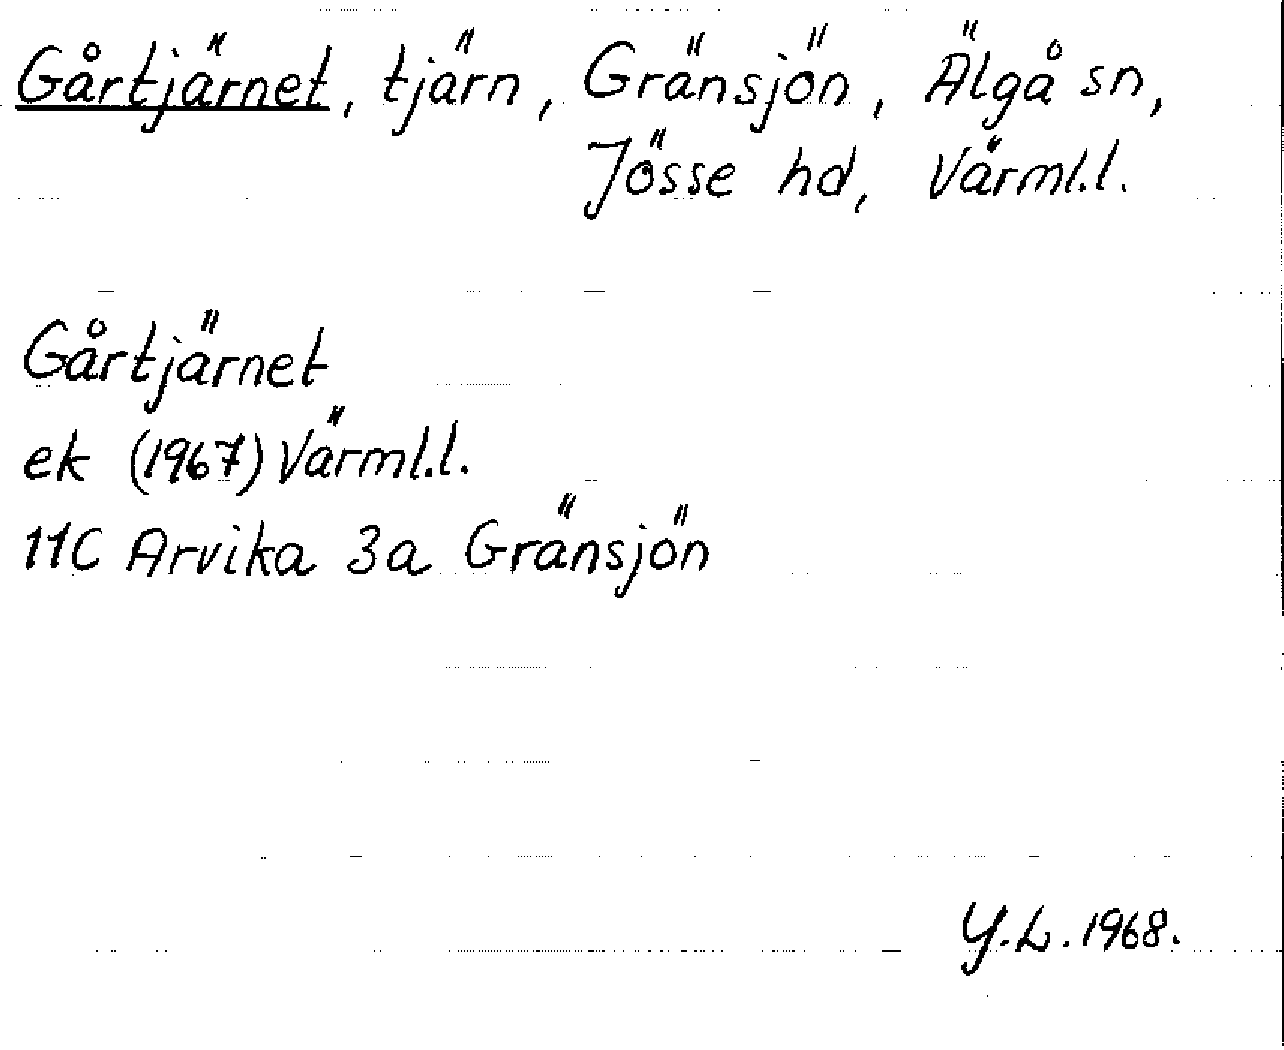 Gårtjärnet, tjärn, Gränsjön, Älgå sn,
Jösse hd, Värml.l.
Gårtjärnet
ek (1967) Värml.l.
11C Arvika 3a Gränsjön
Y.L. 1968.